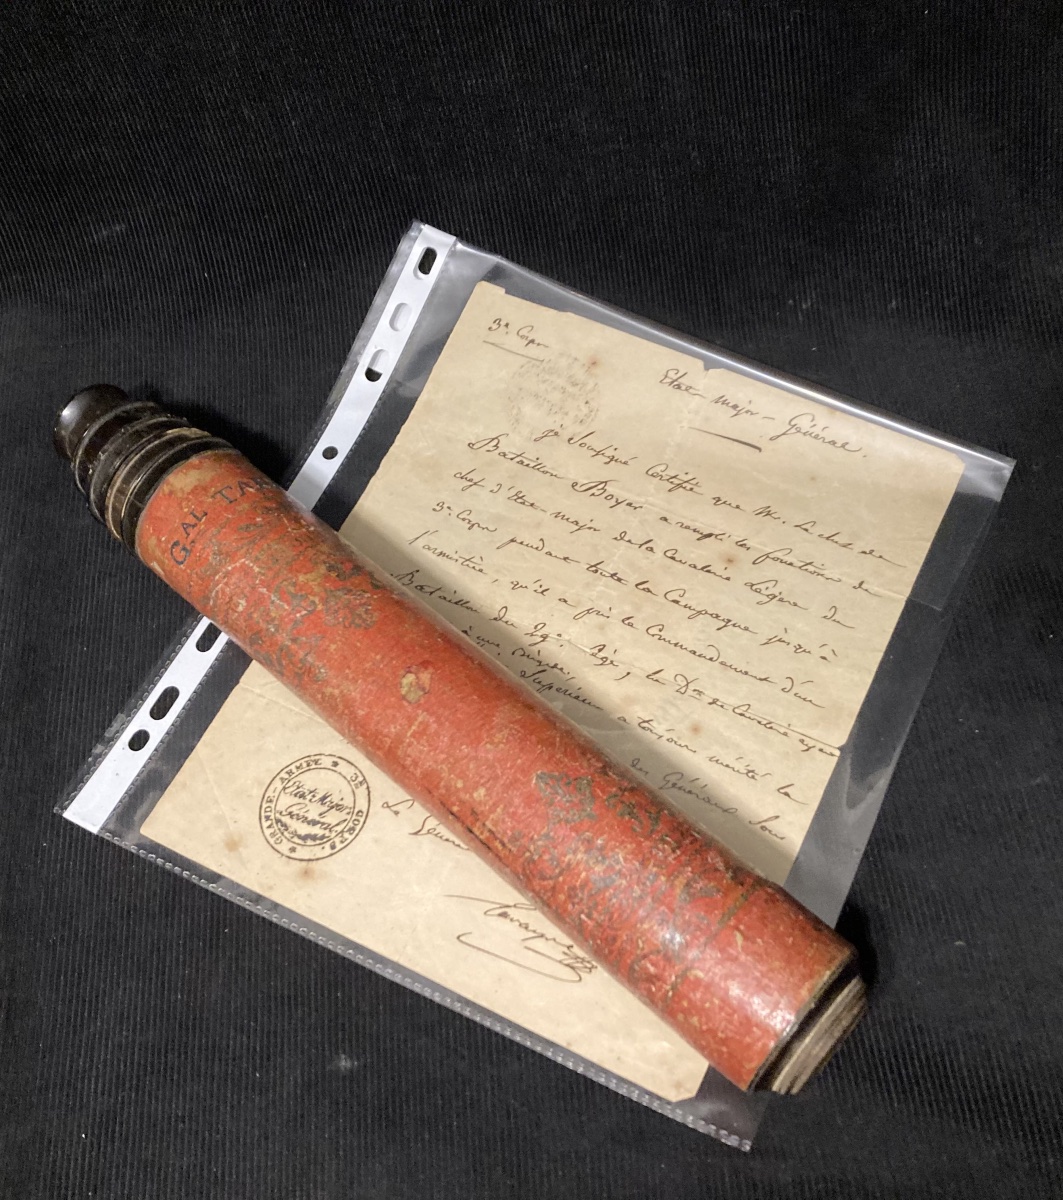 3e. Corps
Etat-Major-Général.
je Soussigné Certifie que Mr. Le chef de
Bataillon Boyer a rempli les fonctions de
chef d'Etat major de la Cavalerie Légère du
3e. Corps pendant toute la Campagne jusqu'à
l'armistice, qu'il a pris le Commandement d'un
Bataillon du
a toujours mérité la
des Généraux sous
Le Général
GRANDE-ARMEE * 3E CORPS. *
Etat-Major
Général
GAL TA